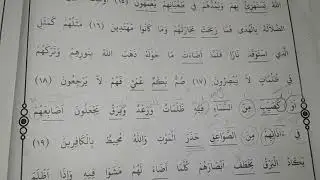 اللَّهُ يَسْتَهْزِئُ بِهِمْ وَيَمُدُّهُمْ فِي طُغْيَانِهِمْ يَعْمَهُونَ (١٥) أُولَٰئِكَ
الضَّلَالَةَ بِالْهُدَى فَمَا رَبِحَتْ تِجَارَتُهُمْ وَمَا كَانُوا مُهْتَدِينَ (١٦) مَثَلُهُمْ كَمَثَلِ
الَّذِي اسْتَوْقَدَ نَارًا فَلَمَّا أَضَاءَتْ مَا حَوْلَهُ ذَهَبَ اللَّهُ بِنُورِهِمْ وَتَرَكَهُمْ
فِي ظُلُمَاتٍ لَا يُبْصِرُونَ (١٧) صُمٌّ بُكْمٌ عُمْيٌ فَهُمْ لَا يَرْجِعُونَ (١٨)
أَوْ كَصَيِّبٍ مِنَ السَّمَاءِ فِيهِ ظُلُمَاتٌ وَرَعْدٌ وَبَرْقٌ يَجْعَلُونَ أَصَابِعَهُمْ
فِي آذَانِهِمْ مِنَ الصَّوَاعِقِ حَذَرَ الْمَوْتِ وَاللَّهُ مُحِيطٌ بِالْكَافِرِينَ (١٩)
يَكَادُ الْبَرْقُ يَخْطَفُ أَبْصَارَهُمْ كُلَّمَا أَضَاءَ لَهُمْ مَشَوْا فِيهِ وَإِذَا أَظْلَمَ